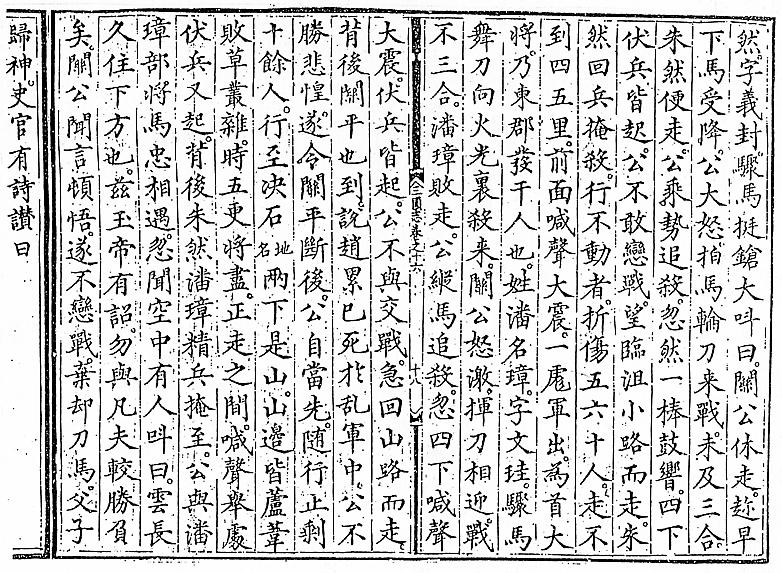 然。字義封。驟馬挺鎗大呌曰。關公休走。趂早
下馬受降。公大怒。拍馬輪刀来戰。未及三合
朱然便走。公乘勢追殺。忽然一棒鼓響。四下
伏兵皆起。公不敢戀戰。望臨沮小路而走。朱
然回兵掩殺。行不動者。折傷五六十人。走不
到四五里。前面喊聲大震。一彪軍出。為首大
將。乃東郡發干人也。姓潘名璋。字文珪。驟馬
舞刀向火光裏殺来。關公怒激。揮刀相迎。戰
不三合。潘璋敗走。公縱馬追殺。忽四下喊聲
三國志卷之十六 十八
大震。伏兵皆起。公不與交戰。急回山路而走。
背後關平也到。說趙累已死於乱軍中。公不
勝悲惶。遂令關平斷後。公自當先。随行止剩
十餘人。行至决石地名兩下是山。山邊皆蘆葦
敗草叢雜。時五更將盡。正走之間。喊聲舉處
伏兵又起。背後朱然潘璋精兵掩至。公與潘
璋部將馬忠相遇。忽聞空中有人呌曰。雲長
久住下方也。兹玉帝有詔。勿與凡夫較勝負
矣。關公聞言頓悟。遂不戀戰。棄却刀馬。父子
歸神。史官有詩讃曰